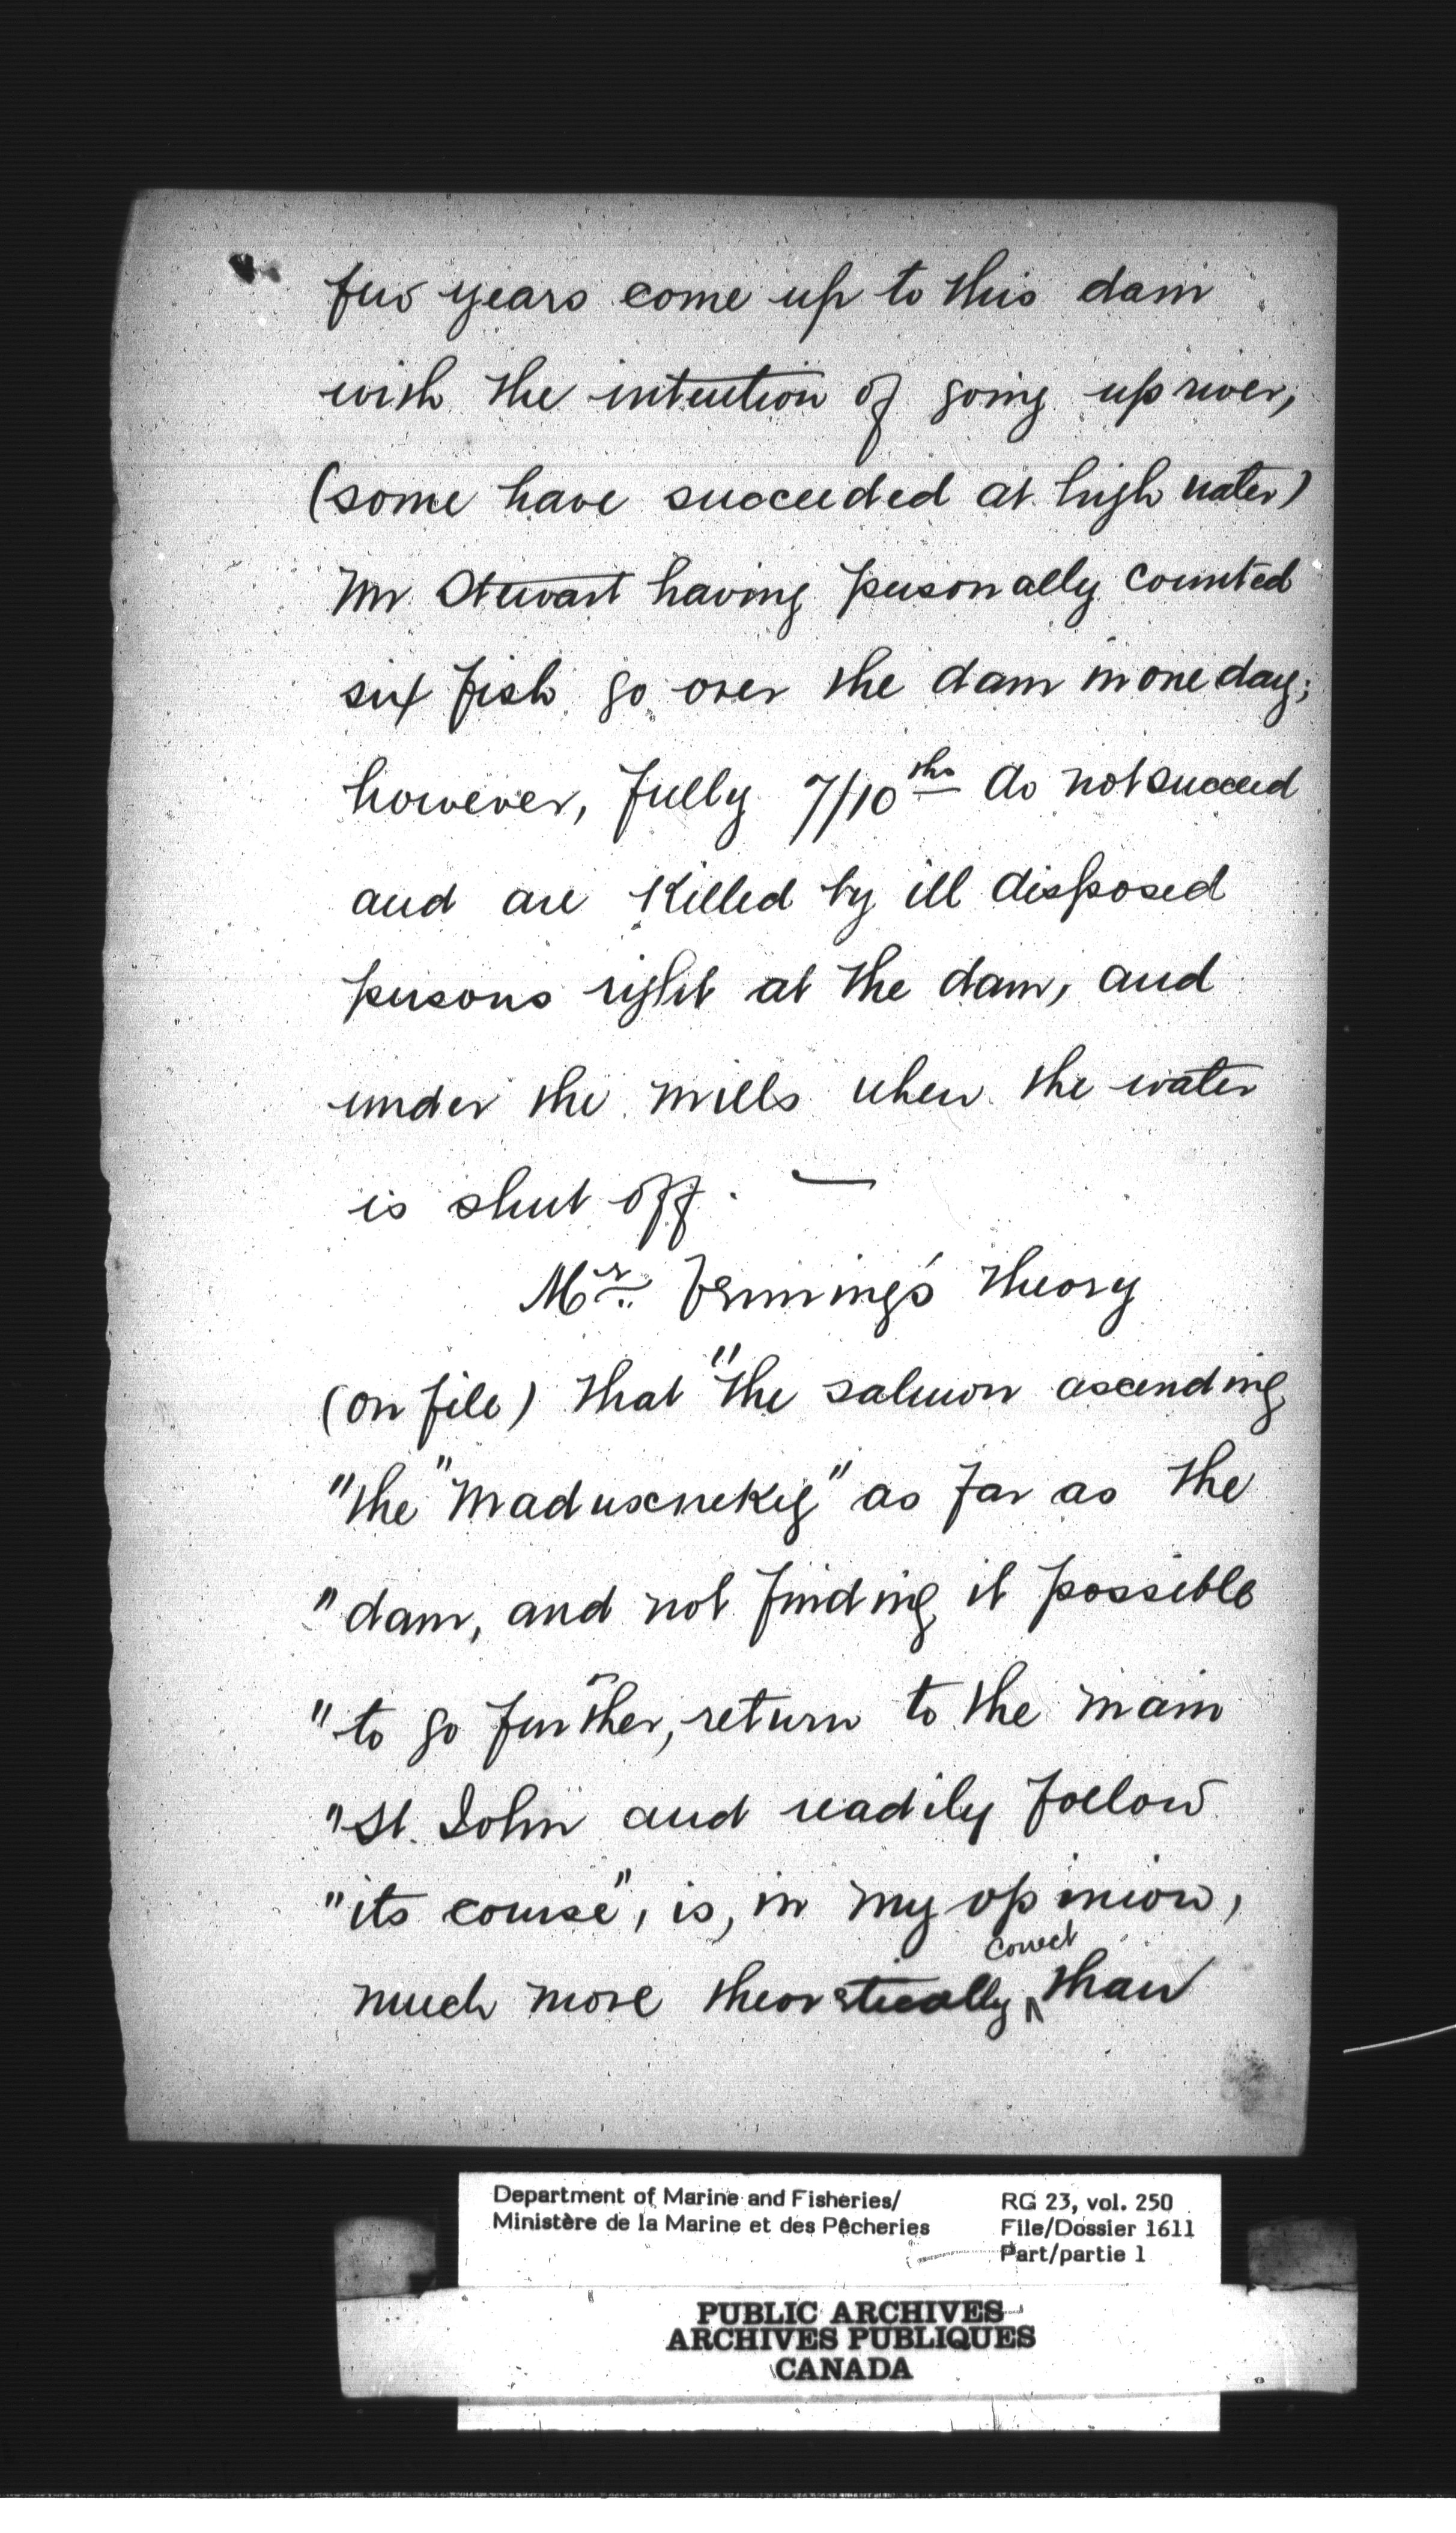 few years come up to this dam
with the intention of going up river,
(some have succeeded at high water)
Mr Stewart having personally counted
six fish go over the dam in one day;
however, fully 7/10ths do not succeed
and are killed by ill disposed
persons right at the dam, and
under the mills when the water
is shut off. —
Mr. Venning's theory
(on file) that "the salmon ascending
"the "Maduxnekeg" as far as the
"dam, and not finding it possible
"to go further, return to the main
"St. John and readily follow
"its course", is, in my opinion,
correct
much more theoretically ^ than
Department of Marine and Fisheries/
Ministère de la Marine et des Pêcheries
RG 23, vol. 250
File/Dossier 1611
Part/partie 1
PUBLIC ARCHIVES
ARCHIVES PUBLIQUES
CANADA